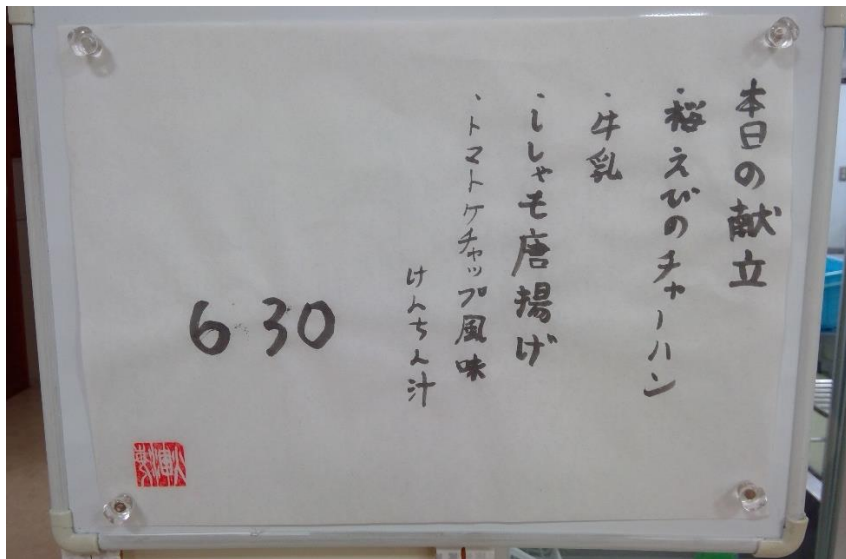 本日の献立
・桜えびのチャーハン
・牛乳
・ししゃも唐揚げ
・トマトケチャップ風味
けんちん汁
6 30